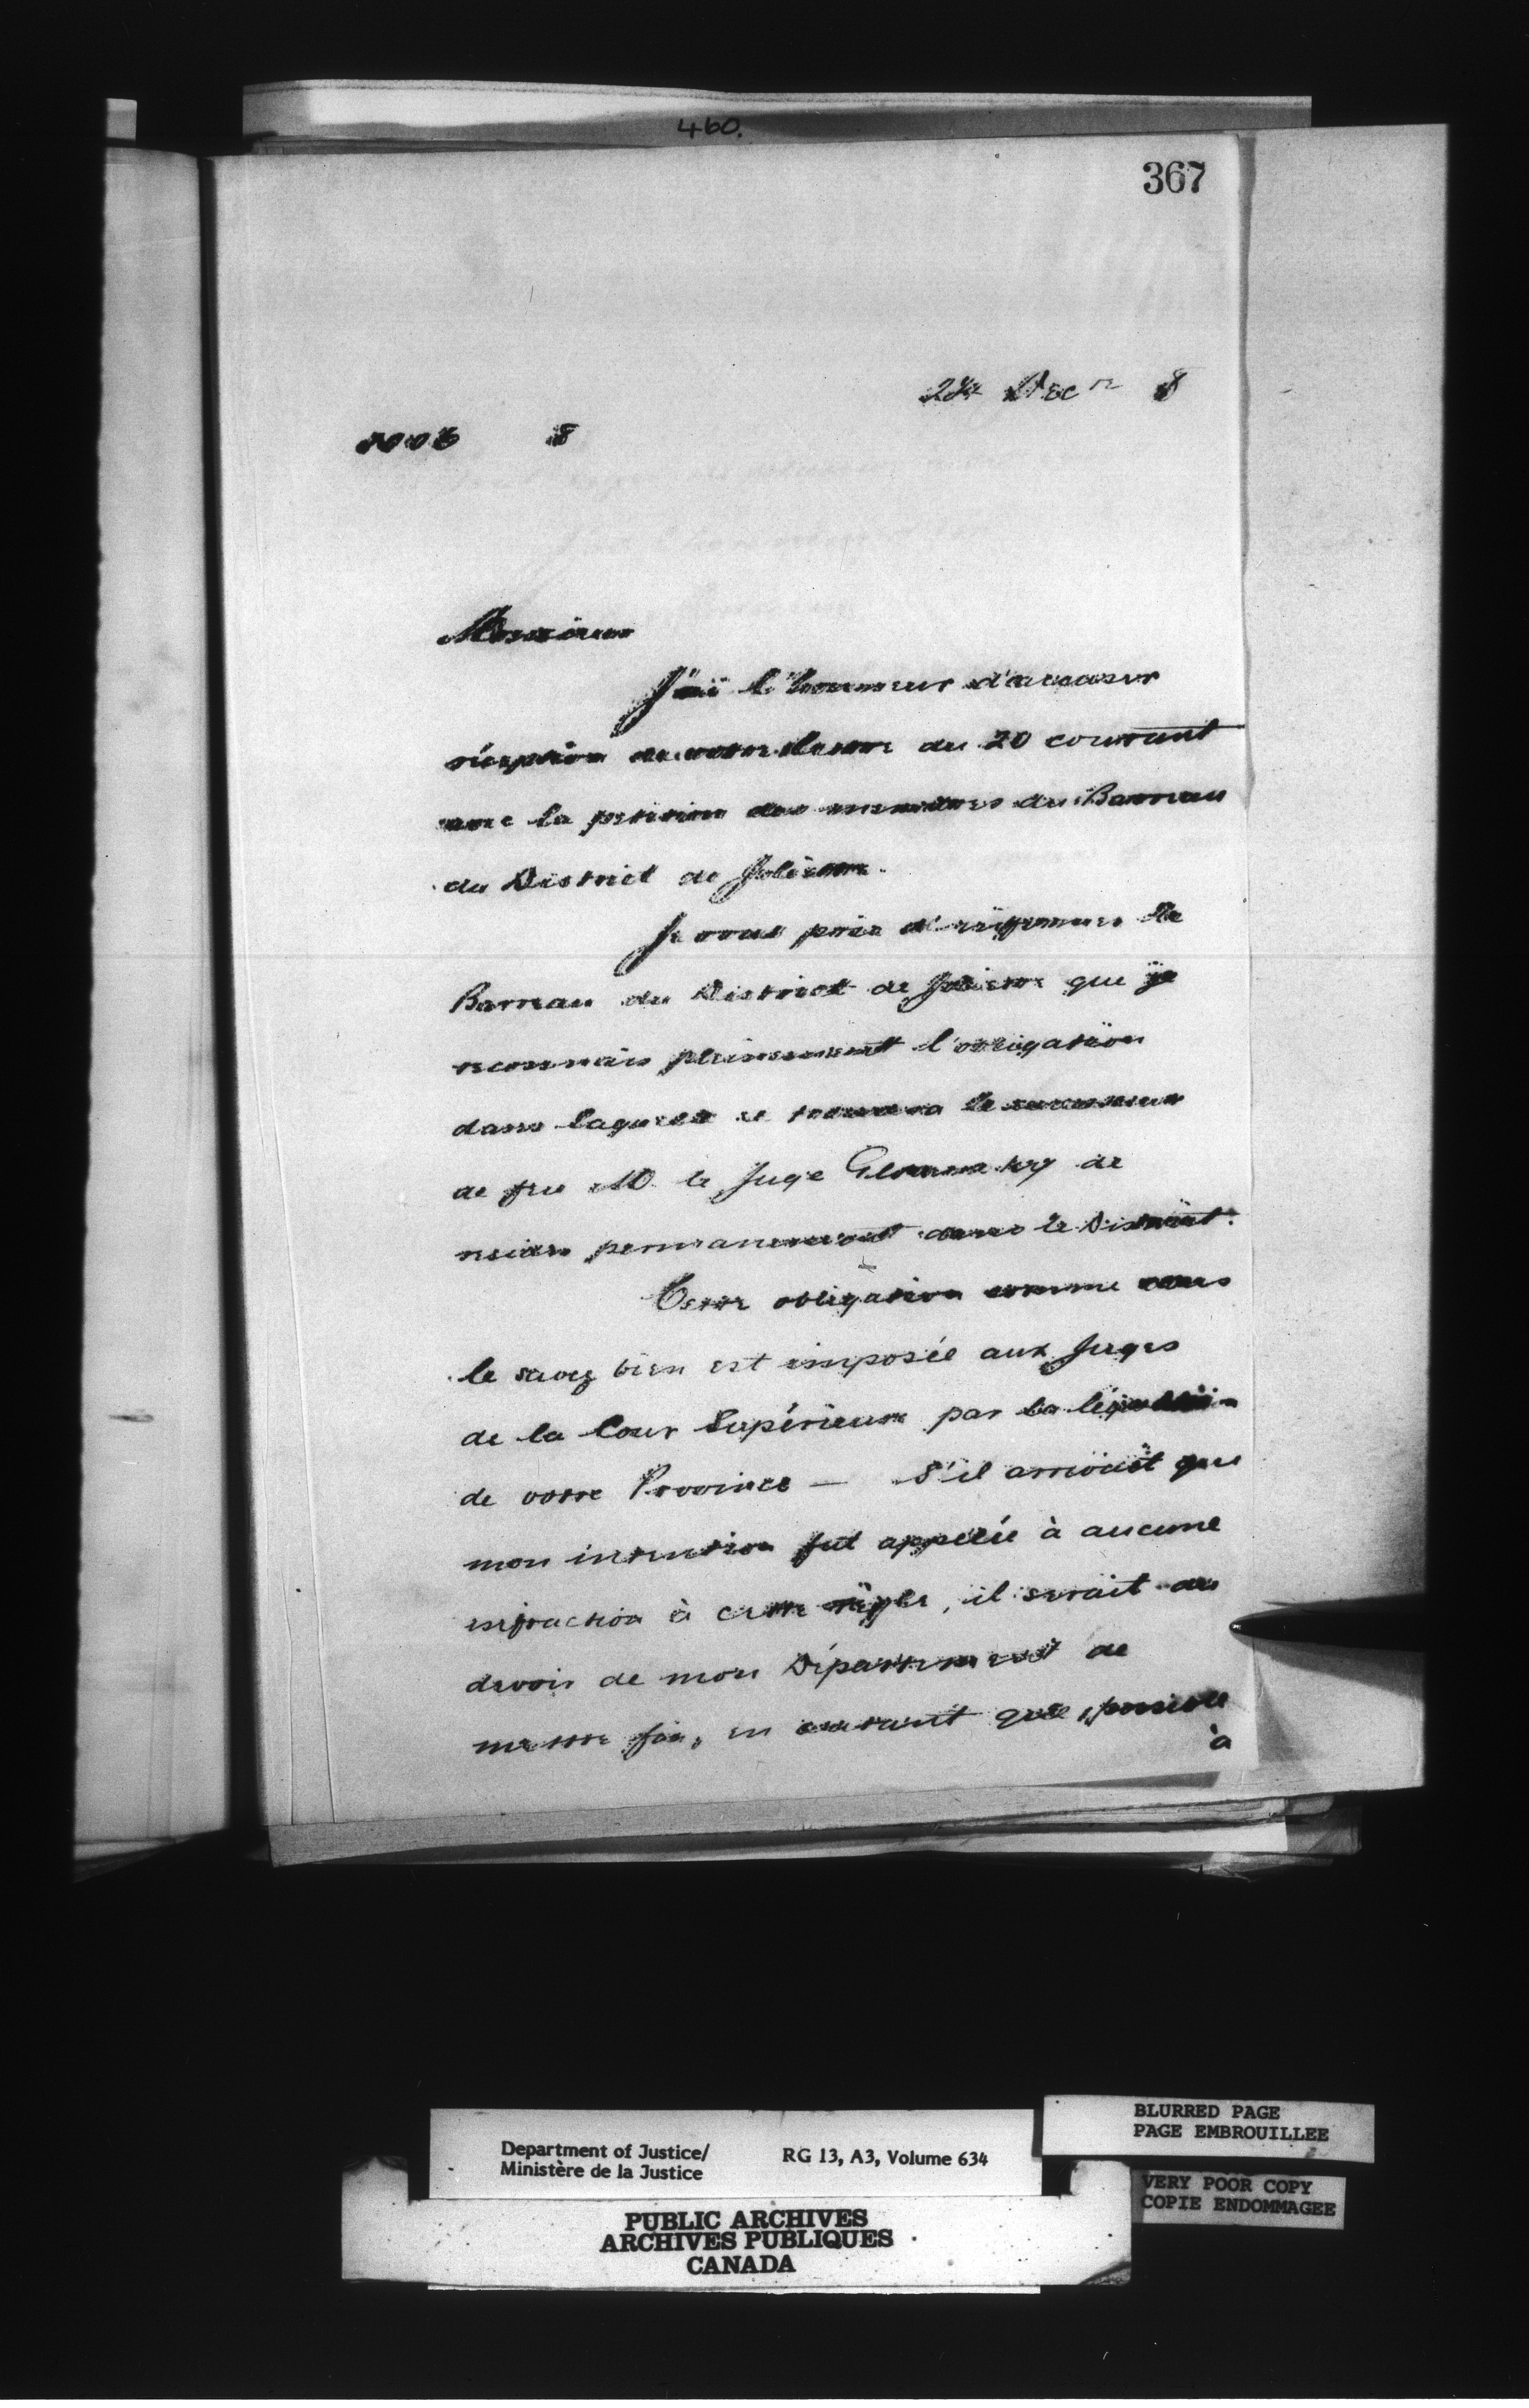 460.
367
24 Dec r 8
8
Monsieur
J'ai l'honneur d'accuser
réception de votre lettre du 20 courant
avec la petition des membres du Barreau
du District de Joliette.
Je vous prie d'informer le
Barreau du District de Joliette que je
reconnais pleinement l'obligation
dans laquelle se trouvera le successeur
de feu M le Juge de
resider permanemment dans le District.
Cette obligation comme vous
le savez bien est imposée aux Juges
de la Cour Supérieure par la législation
de votre Province — S'il arrivait que
mon attention fut appelée à aucune
infraction à cette règle, il serait du
devoir de mon Département de
mettre fin, en autant que possible
à
Department of Justice/
Ministère de la Justice
RG 13, A3, Volume 634
BLURRED PAGE
PAGE EMBROUILLEE
VERY POOR COPY
COPIE ENDOMMAGEE
PUBLIC ARCHIVES
ARCHIVES PUBLIQUES
CANADA